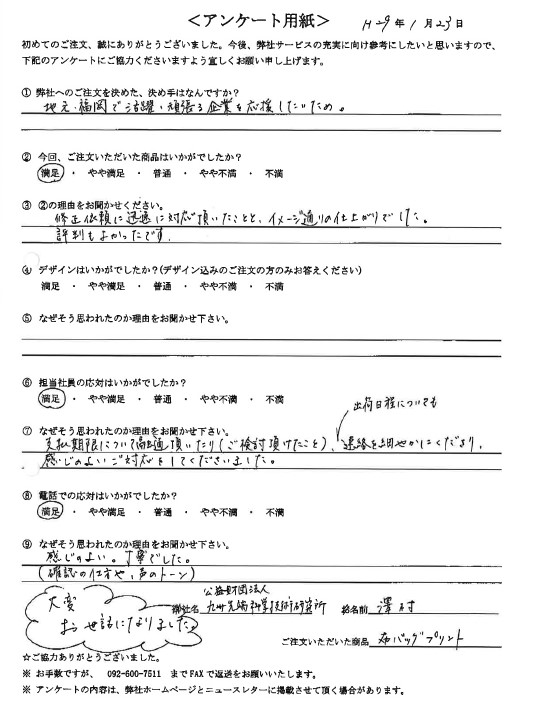 ＜アンケート用紙＞ H29年1月23日
初めてのご注文、誠にありがとうございました。今後、弊社サービスの充実に向け参考にしたいと思いますので、
下記のアンケートにご協力くださいますよう宜しくお願い申し上げます。
① 弊社へのご注文を決めた、決め手はなんですか？
地元・福岡で活躍・頑張る企業を応援したいため。
② 今回、ご注文いただいた商品はいかがでしたか？
満足 ・ やや満足 ・ 普通 ・ やや不満 ・ 不満
③ ②の理由をお聞かせください。
修正依頼に迅速に対応頂いたことと、イメージ通りの仕上がりでした。
評判もよかったです。
④ デザインはいかがでしたか？（デザイン込みのご注文の方のみお答えください）
満足 ・ やや満足 ・ 普通 ・ やや不満 ・ 不満
⑤ なぜそう思われたのか理由をお聞かせ下さい。
⑥ 担当社員の応対はいかがでしたか？
満足 ・ やや満足 ・ 普通 ・ やや不満 ・ 不満
出荷日程についても
⑦ なぜそう思われたのか理由をお聞かせ下さい。
支払期限について融通頂いたり（ご検討頂けたこと）、連絡を細やかにくださり、
感じのよいご対応をしてくださいました。
⑧ 電話での応対はいかがでしたか？
満足 ・ やや満足 ・ 普通 ・ やや不満 ・ 不満
⑨ なぜそう思われたのか理由をお聞かせ下さい。
感じのよい。丁寧でした。
（確認の仕方や、声のトーン）
大変
お世話になりました。
公益財団法人
御社名 九州先端科学技術研究所 お名前 澤村
ご注文いただいた商品 布バッグプリント
☆ご協力ありがとうございました。
※ お手数ですが、 092-600-7511 までFAXで返送をお願いいたします。
※ アンケートの内容は、弊社ホームページとニュースレターに掲載させて頂く場合があります。